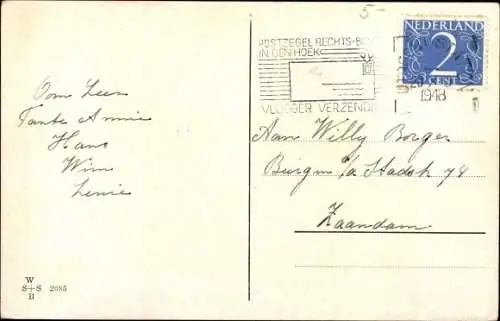 5-
POSTZEGEL RECHTS-BOVEN
IN DEN HOEK
VLUGGER VERZENDING
NEDERLAND
2
CENT
1948
Oom Leen
Tante Annie
Hans
Wim
Lenie
Aan Willy Borger
Burgm i/a Stadsk 74
Zaandam
W
S+S 2685
B